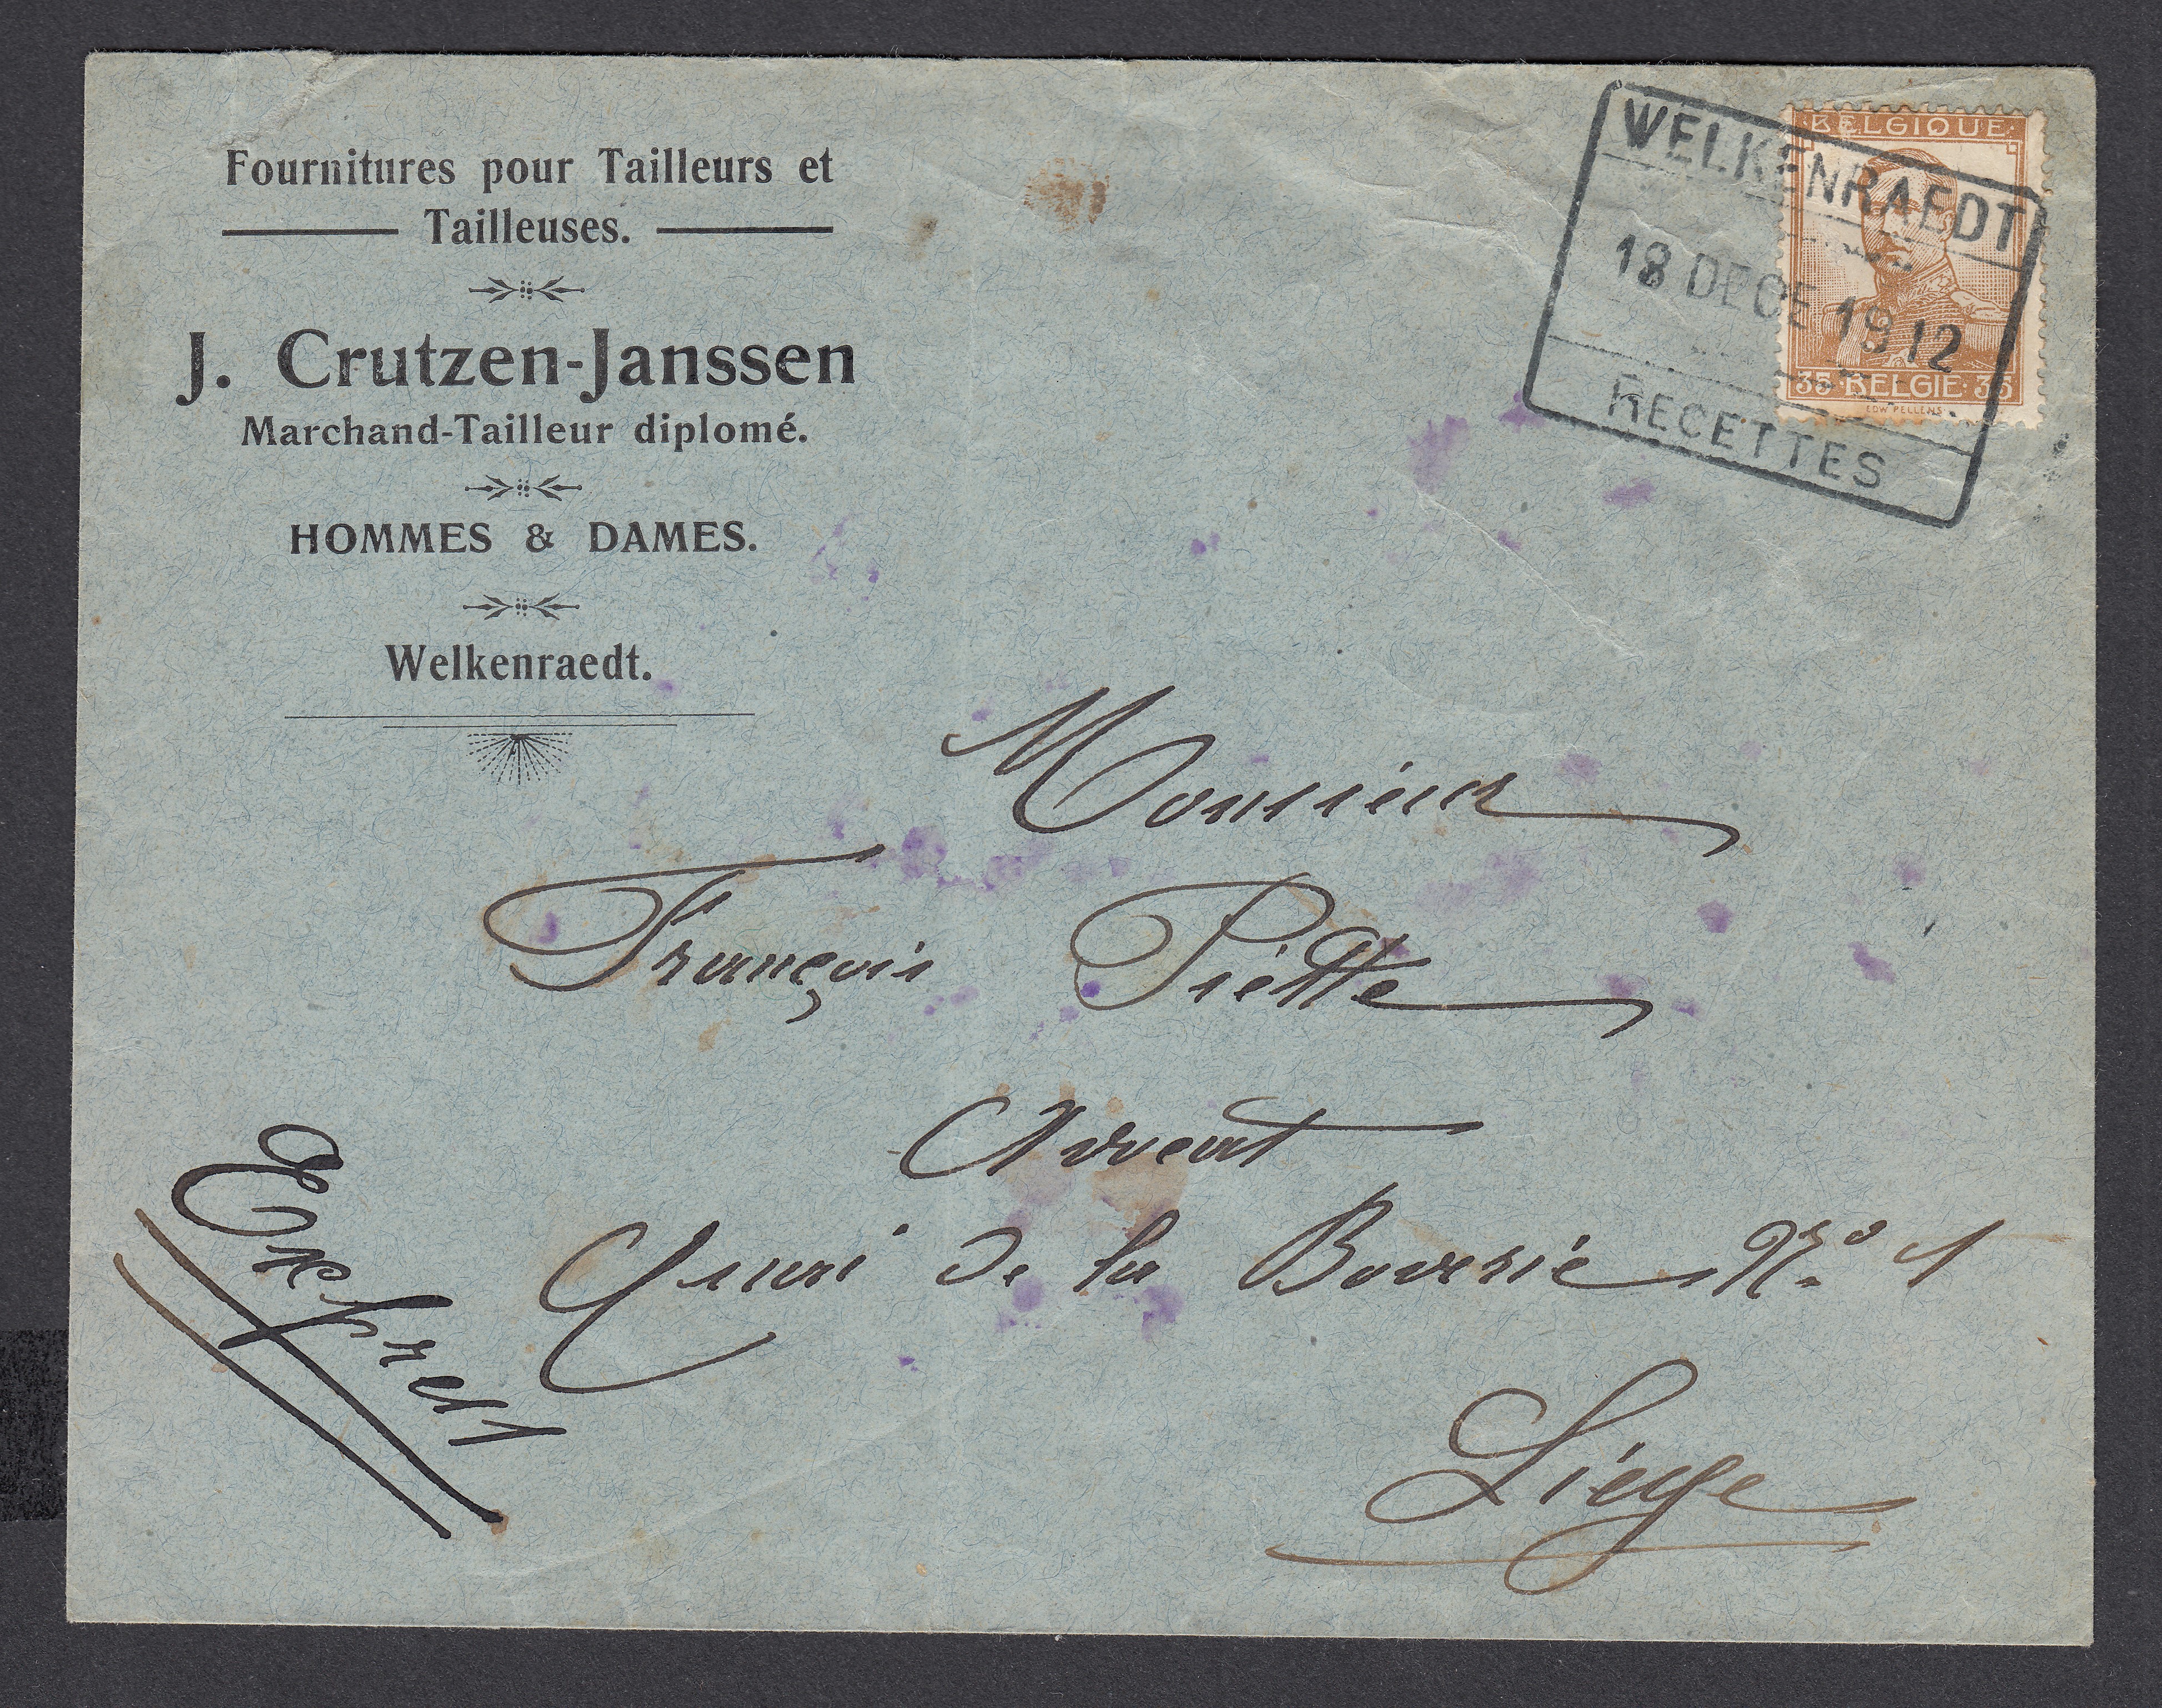 Fournitures pour Tailleurs et
Tailleuses.
J. Crutzen-Janssen
Marchand-Tailleur diplomé.
HOMMES & DAMES.
Welkenraedt.
·BELGIQUE·
35·BELGIE·35
EDW PELLENS
WELKENRAEDT
18 DECE 1912
RECETTES
Monsieur
François Piétte
Avocat
Quai de la Boverie No 1
Liége
Express